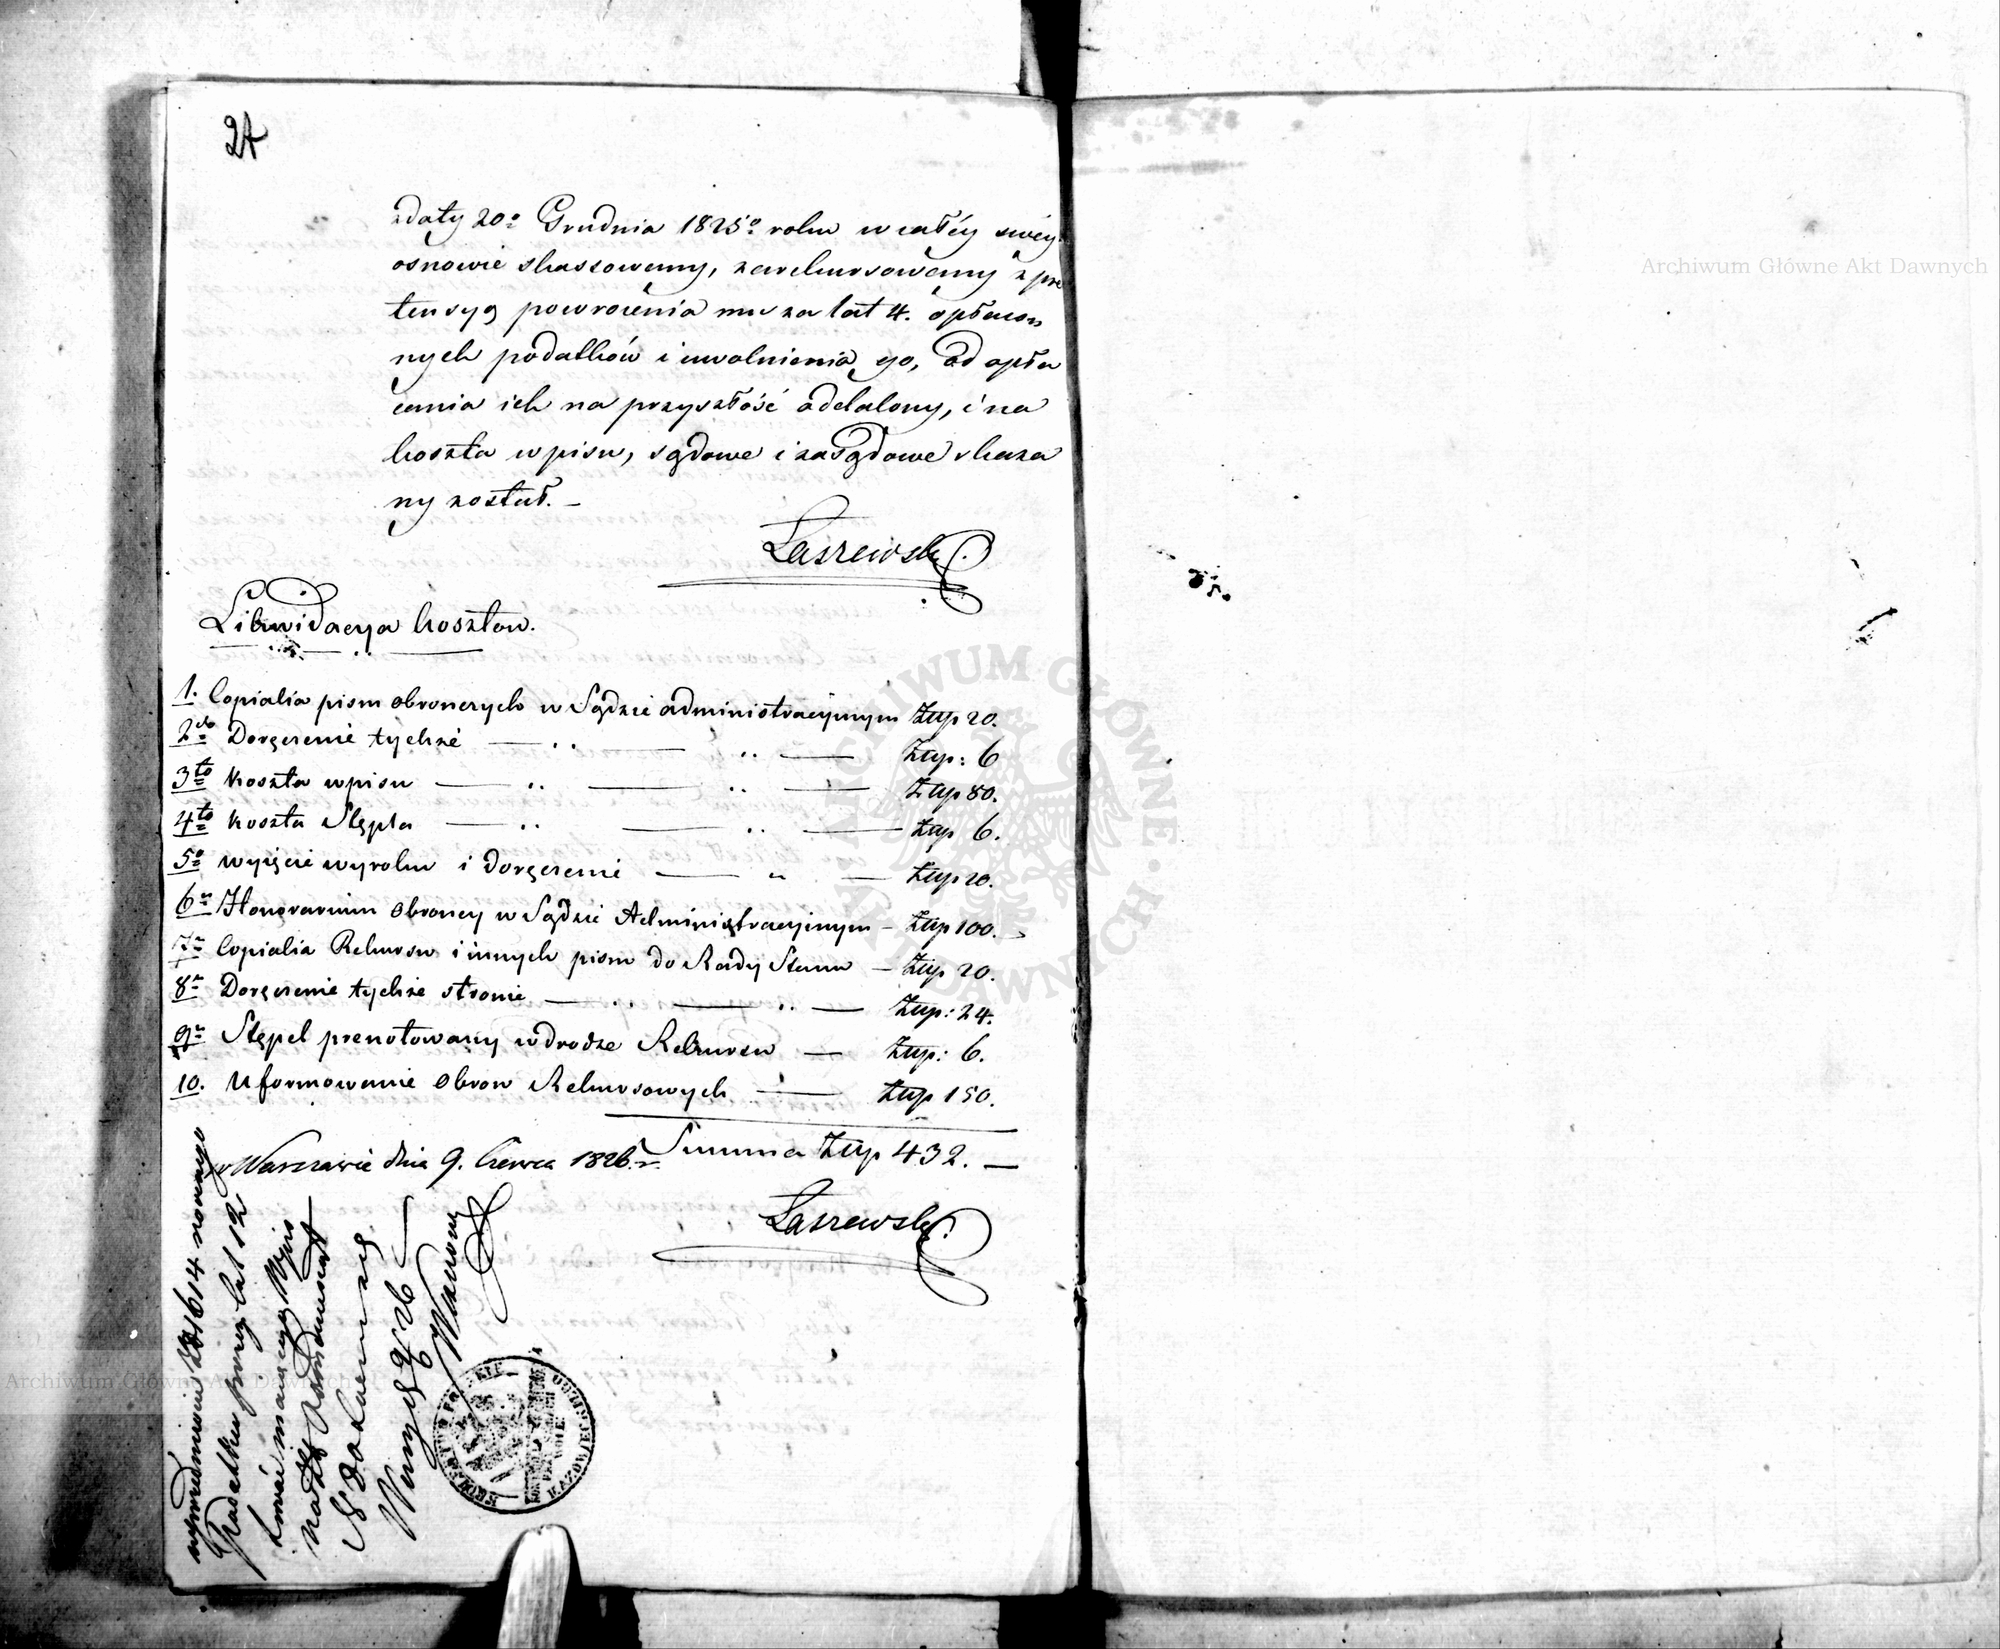 24
z daty 20º Grudnia 1825º roku w całéy swéy
osnowie skassowany, zarekursowany z pre
tensyą powrócenia mu za lat 4. opłacon
nych podatków i uwolnienia go, od opła
cania ich na przyszłość oddalony, i na
koszta wpisu, sądowe i zasądowe skaza
ny został. –
Łaszewski
Likwidacya kosztów.
1. Copialia pism obronczych w Sądzie administracyjnym Złlp 20.
2do Doręczenie tychże — Złlp: 6
3to koszta wpisu — Złlp 80.
4to koszta Stępla — Złlp 6.
5º wyięcie wyroku i doręczenie — Złlp 20.
6º Honorarium Obroncy w Sądzie Administracyjnym – Złlp 100.
7º Copialia Rekursu i innych pism do Rady Stanu – Złlp 20.
8º Doręczenie tychże stronie — Złlp: 24.
9º Stępel prenotowany w drodze Rekursu — Złlp: 6.
10. Uformowanie Obron Rekursowych — Złlp 150.
Summa Złlp 432. —
w Warszawie dnia 9. Czerwca 1826. r.
Łaszewski
lat 12
Wpis
MAZOWIECKIEGO
Archiwum Główne Akt Dawnych
Archiwum Główne Akt Dawnych
ARCHIWUM GŁÓWNE AKT DAWNYCH